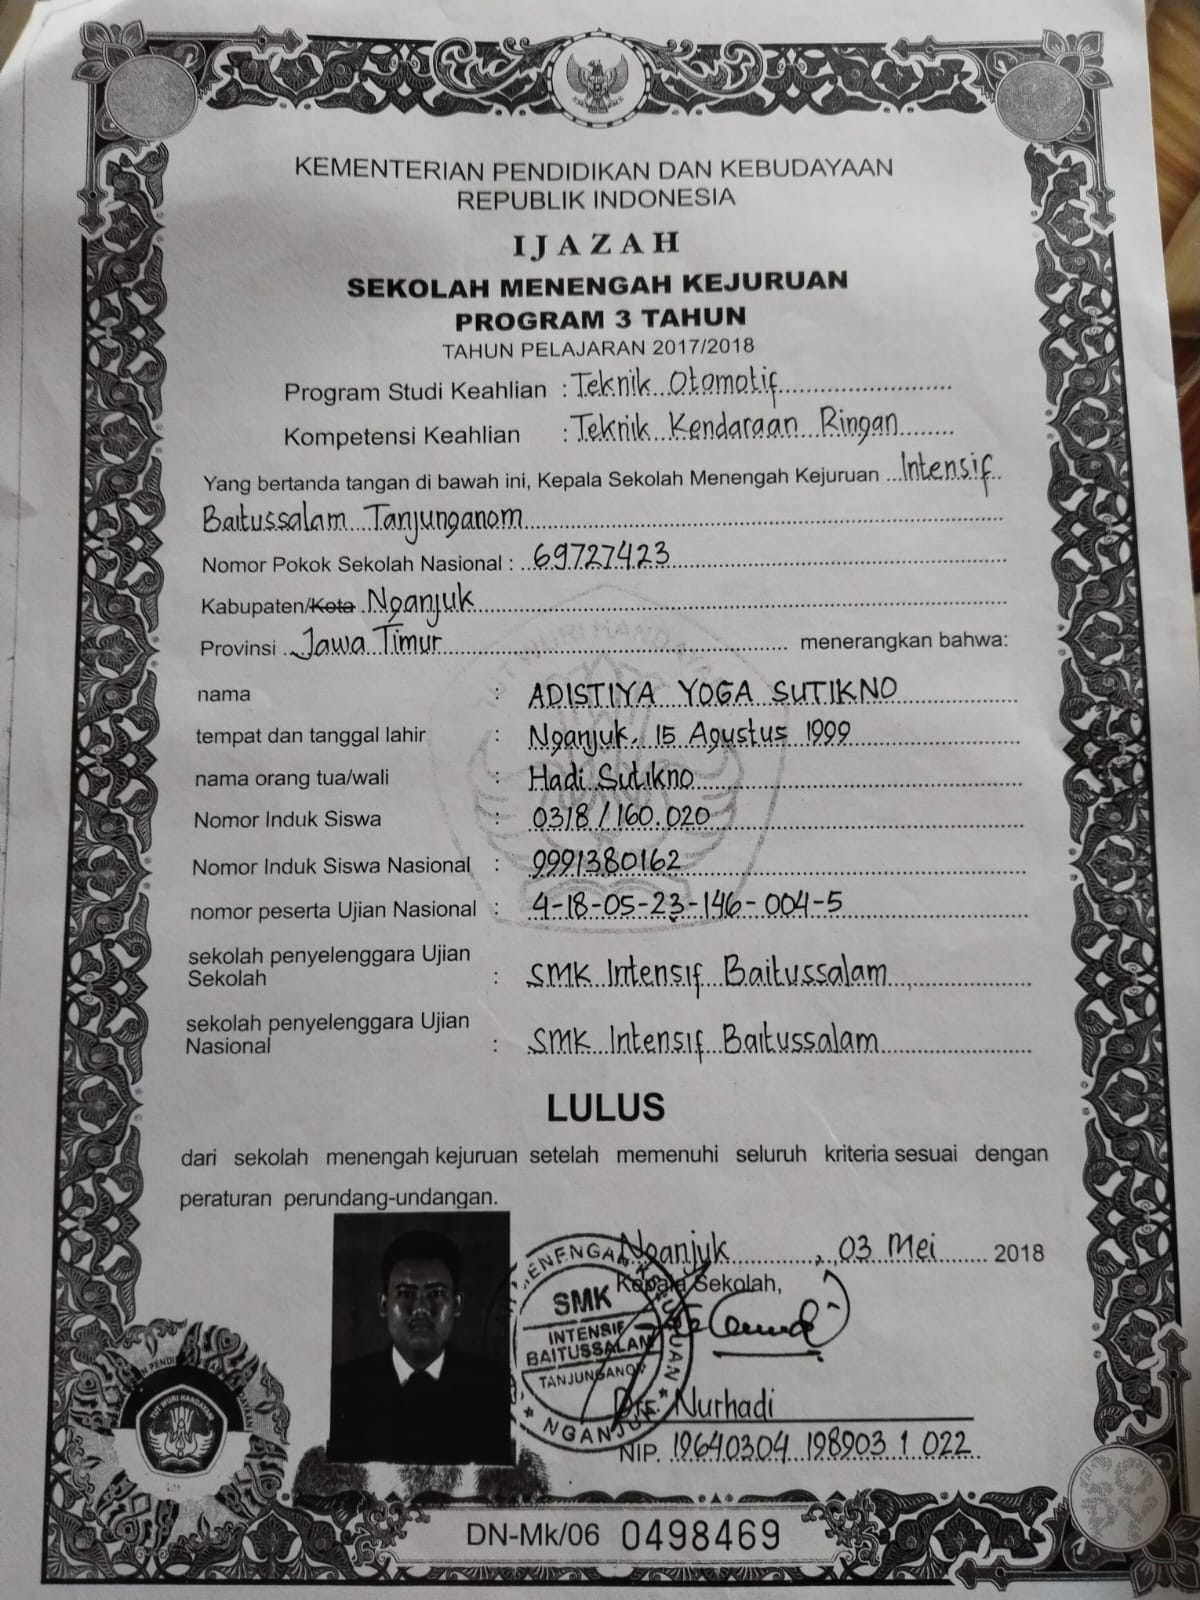 KEMENTERIAN PENDIDIKAN DAN KEBUDAYAAN
REPUBLIK INDONESIA
IJAZAH
SEKOLAH MENENGAH KEJURUAN
PROGRAM 3 TAHUN
TAHUN PELAJARAN 2017/2018
Program Studi Keahlian : Teknik Otomotif
Kompetensi Keahlian : Teknik Kendaraan Ringan
Yang bertanda tangan di bawah ini, Kepala Sekolah Menengah Kejuruan Intensif
Baitussalam Tanjunganom
Nomor Pokok Sekolah Nasional : 69727423
Kabupaten/Kota Nganjuk
Provinsi Jawa Timur menerangkan bahwa:
nama : ADISTIYA YOGA SUTIKNO
tempat dan tanggal lahir : Nganjuk, 15 Agustus 1999
nama orang tua/wali : Hadi Sutikno
Nomor Induk Siswa : 0318 / 160.020
Nomor Induk Siswa Nasional : 9991380162
nomor peserta Ujian Nasional : 4-18-05-23-146-004-5
sekolah penyelenggara Ujian
Sekolah : SMK Intensif Baitussalam
sekolah penyelenggara Ujian
Nasional : SMK Intensif Baitussalam
LULUS
dari sekolah menengah kejuruan setelah memenuhi seluruh kriteria sesuai dengan
peraturan perundang-undangan.
Nganjuk, 03 Mei 2018
Kepala Sekolah,
SMK
INTENSIF
BAITUSSALAM
TANJUNGANOM
NGANJUK
Drs. Nurhadi
NIP. 19640304 198903 1 022
TUT WURI HANDAYANI
DN-Mk/06 0498469